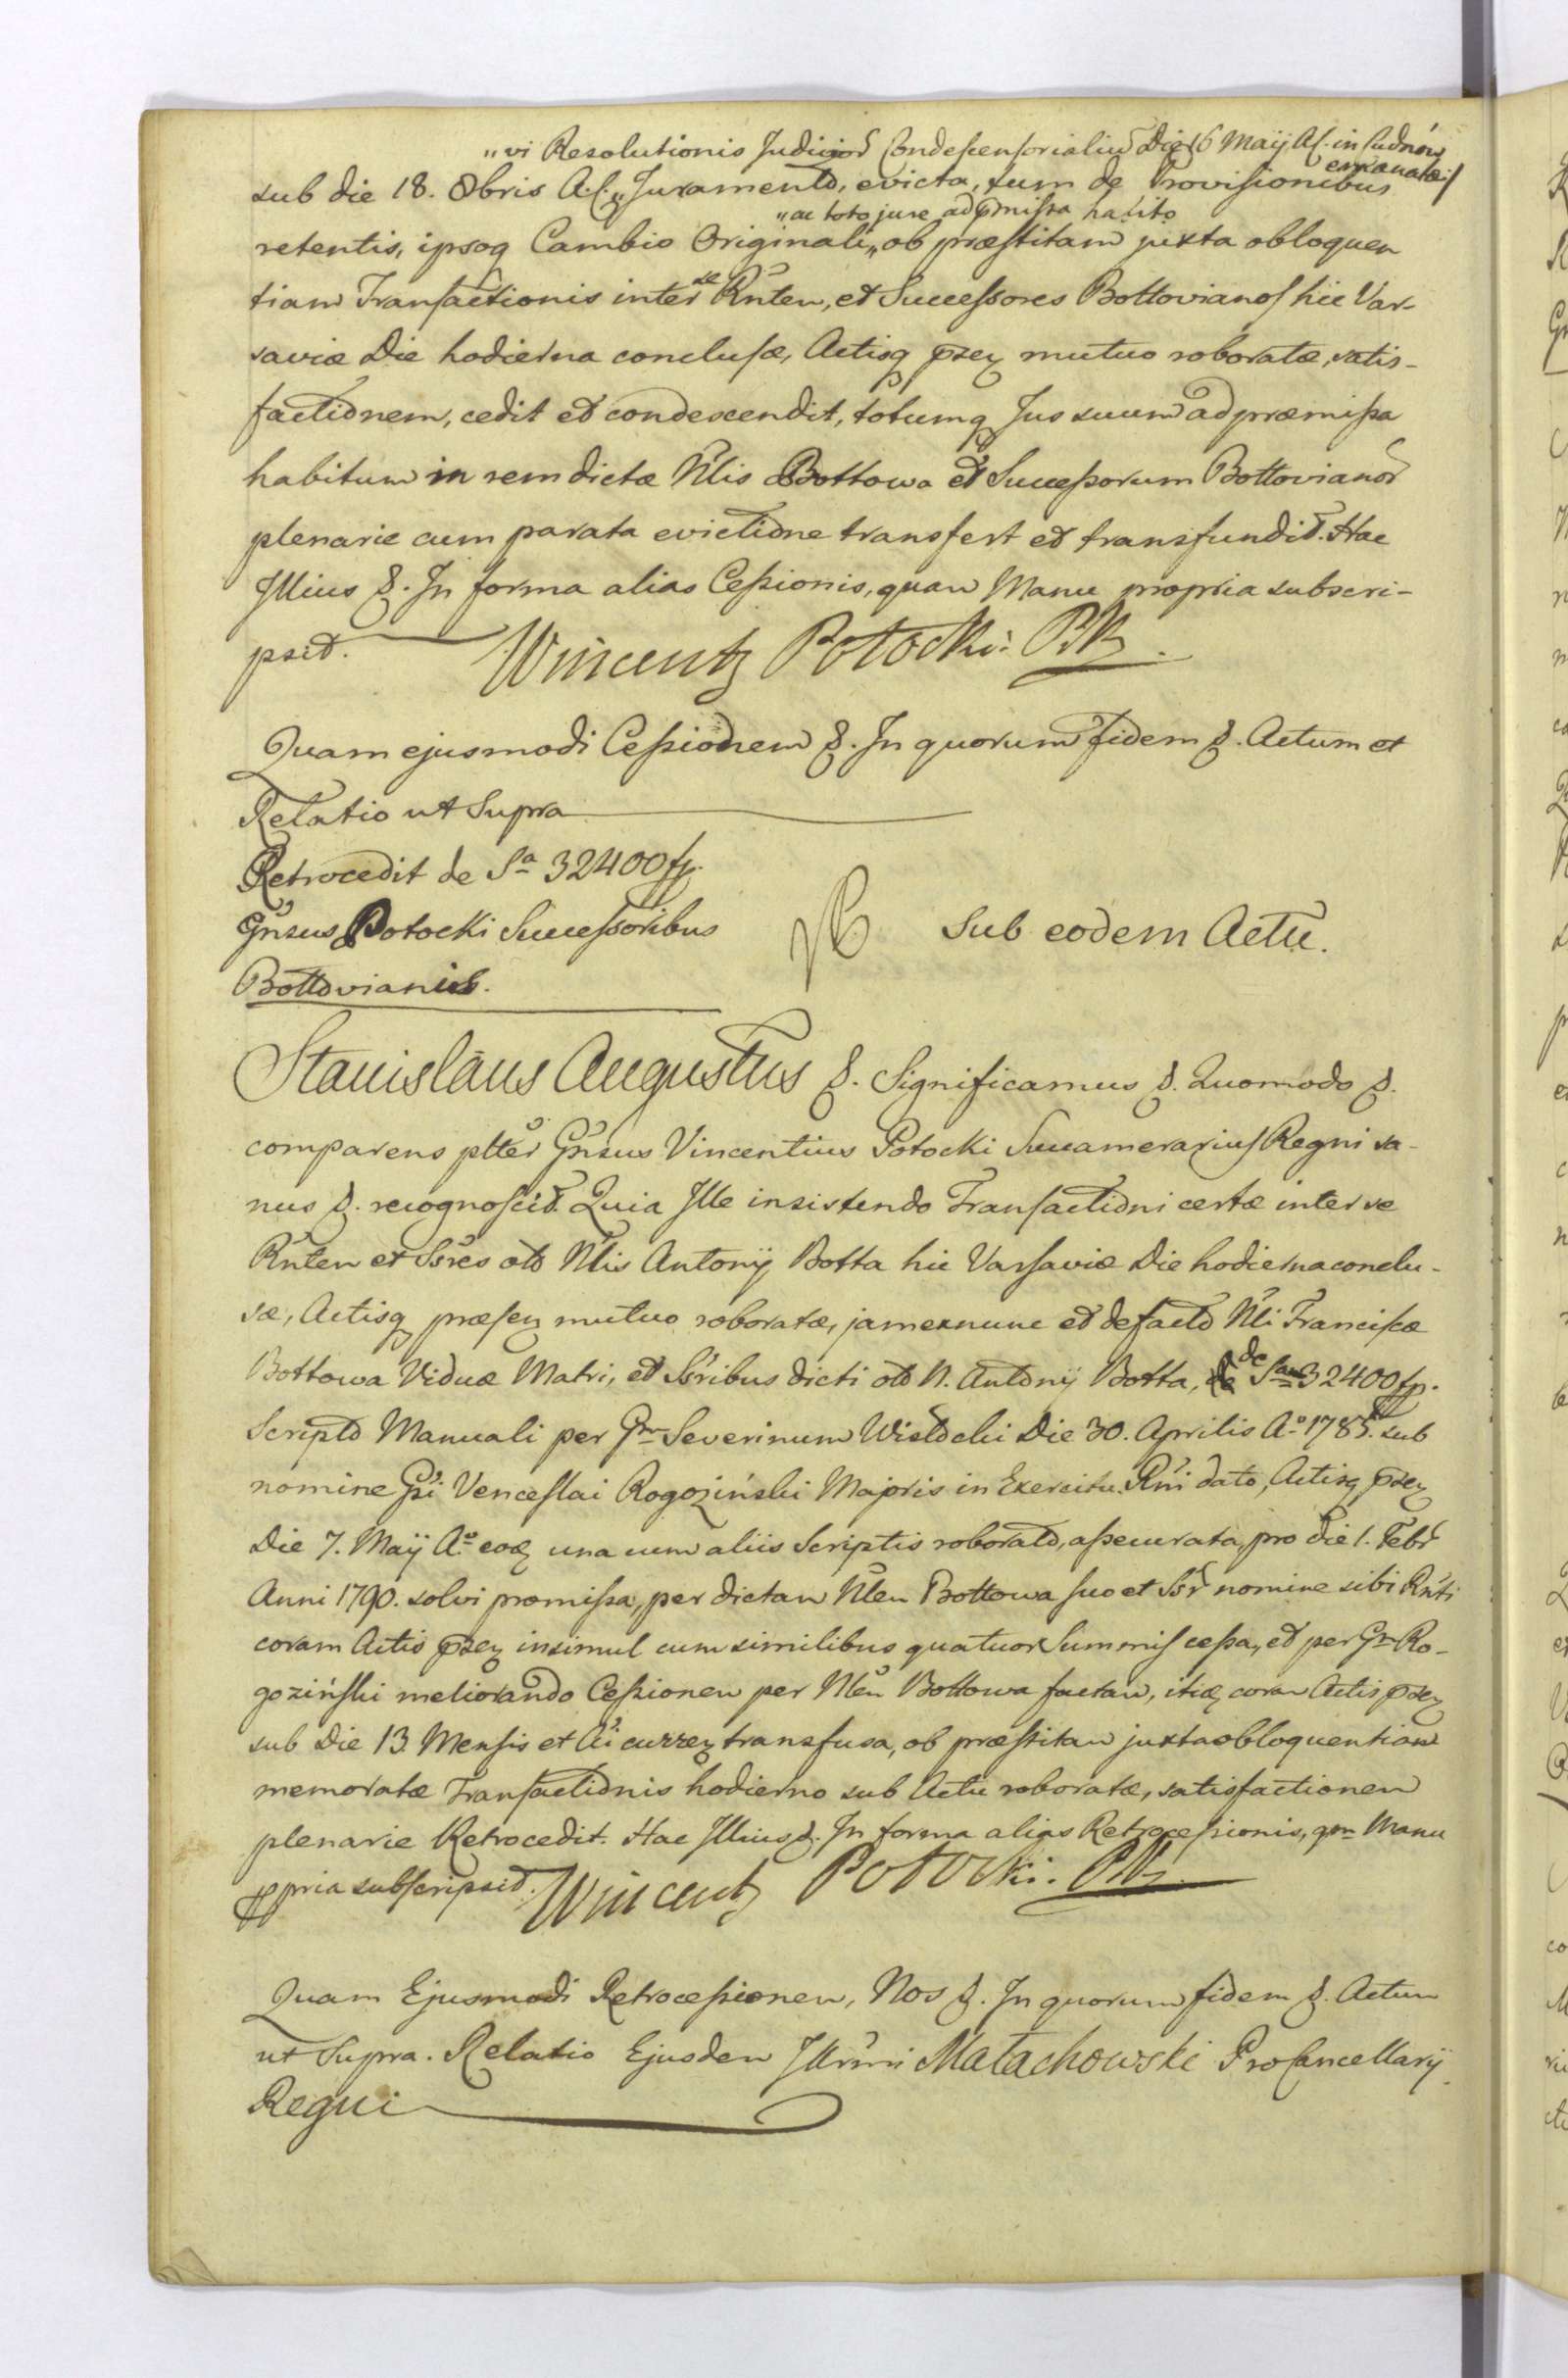 „vi Resolutionis Judicior Condescensorialiu Die 16 Maij A.f. in Cudnów emanatæ
sub die 18. 8bris A.f. „Juramento, evicta, tum de Provisionibus
„ac toto jure ad pmissa habito
retentis, ipsoq Cambio Originali „ob præstitam juxta obloquen
tiam Transactionis inter se Rnten, et Successores Bottovianos hic Var-
saviæ Die hodierna conclusæ, Actisq psez mutuo roboratæ, satis-
factionem, cedit et condescendit, totumq Jus suum ad præmissa
habitum in rem dictæ Nlis Bottowa et Successorum Bottovianor
plenarie cum parata evictione transfert et transfundit. Hac
Illius &. In forma alias Cessionis, quam Manu propria subscri-
psit. Wincenty Potocki: PK.
Quam ejusmodi Cessionem &. In quorum fidem &. Actum et
Relatio ut Supra
Retrocedit de Sa 32400 fp.
Gnsus Potocki Successoribus
Sub eodem Actu.
Bottovianis.
Stanislaus Augustus &. Significamus &. Quomodo &.
comparens plter Gnsus Vincentius Potocki Succamerarius Regni sa-
nus &. recognoscit. Quia Ille insistendo Transactioni certæ inter se
Rnten et Ssres olo Nlis Antonij Botta hic Varsaviæ Die hodierna conclu-
sæ, Actisq præsez mutuo roboratæ, jam ex nunc et de facto Nli Franciscæ
Bottowa Viduæ Matri, et Ssribus dicti olo N. Antonij Botta, de Sa 32400 fp.
Scripto Manuali per Gm Severinum Wistocki Die 30. Aprilis Ao 1785. sub
nomine Gsi Venceslai Rogoziński Majoris in Exercitu Rni dato, Actisq psez
Die 7. Maij Ao eoq una cum aliis Scriptis roborato, assecurata, pro die 1. Febr
Anni 1790. solvi promissa, per dictam Nlem Bottowa suo et Ssr nomine sibi Rnti
coram Actis psez insimul cum similibus quatuor Summis cessa, et per Gm Ro-
goziński meliorando Cessionem per Nlem Bottowa factam, itiq coram Actis psez
sub Die 13. Mensis et Ai currez transfusa, ob præstitam juxta obloquentiam
memoratæ Transactionis hodierno sub Actu roboratæ, satisfactionem
plenarie Retrocedit. Hac Illius &. In forma alias Retrocessionis, qm Manu
ppria subscripsit. Wincenty Potocki: PK.
Quam Ejusmodi Retrocessionem, Nos &. In quorum fidem &. Actum
ut Supra. Relatio Ejusdem Illrmi Małachowski ProCancellarij
Regni